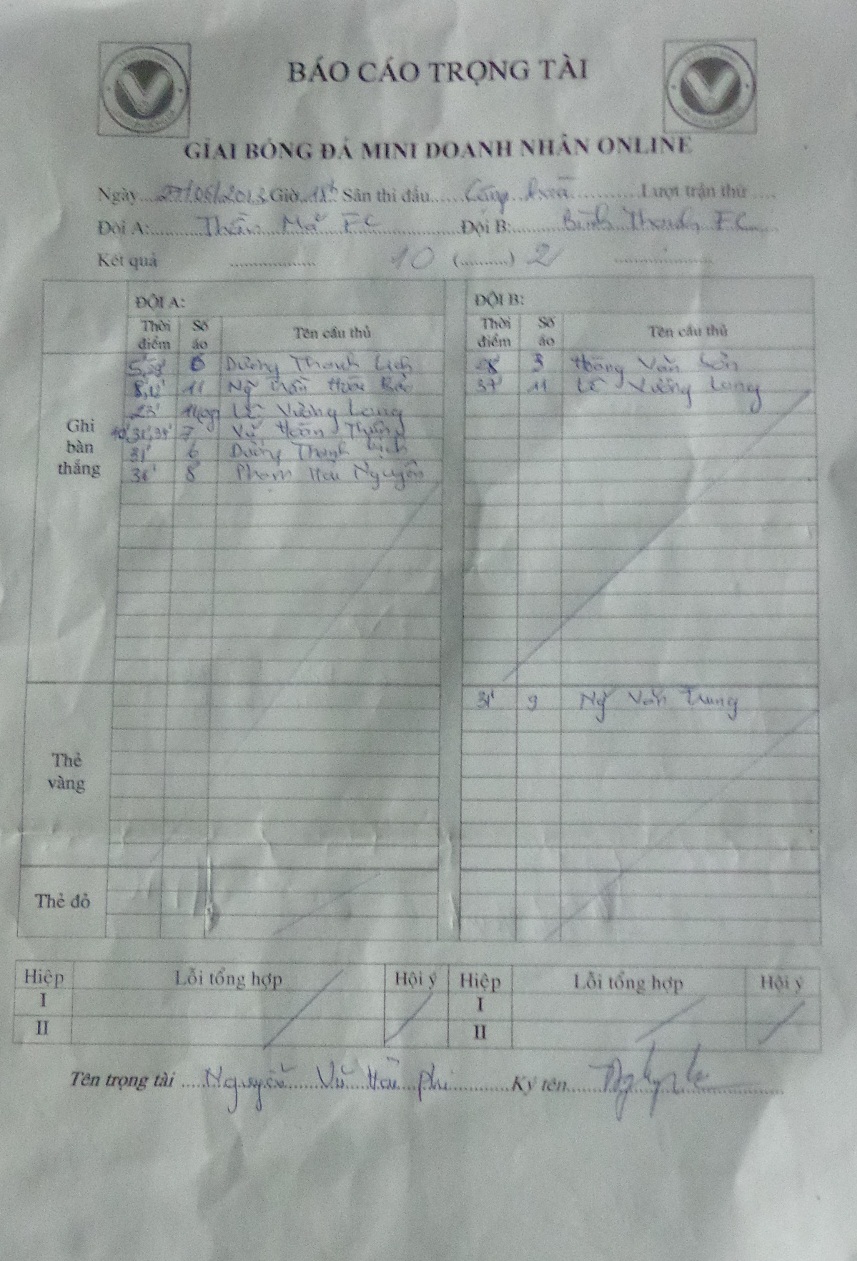 BÁO CÁO TRỌNG TÀI
GIẢI BÓNG ĐÁ MINI DOANH NHÂN ONLINE
Ngày 27/06/2013 Giờ 18h Sân thi đấu Cộng hoà Lượt trận thứ
Đội A: Thần Mã FC Đội B: Bình Thạnh FC
Kết quả 10 ( ) 2
ĐỘI A: ĐỘI B:
Thời điểm Số áo Tên cầu thủ Thời điểm Số áo Tên cầu thủ
Ghi bàn thắng
6 Dương Thanh Lịch 28' 3 Hoàng Văn Sơn
11 Ng Trần Hữu Bảo 37' 11 Lê Vương Long
23' Lê Vương Long
7 Vũ Hoàn
31' 6 Dương Thanh Lịch
8 Phạm Hữu Nguyên
Thẻ vàng
31' 9 Ng Văn Trung
Thẻ đỏ
Hiệp Lỗi tổng hợp Hội ý Hiệp Lỗi tổng hợp Hội ý
I I
II II
Tên trọng tài Nguyễn Vũ Hoà Phi Ký tên